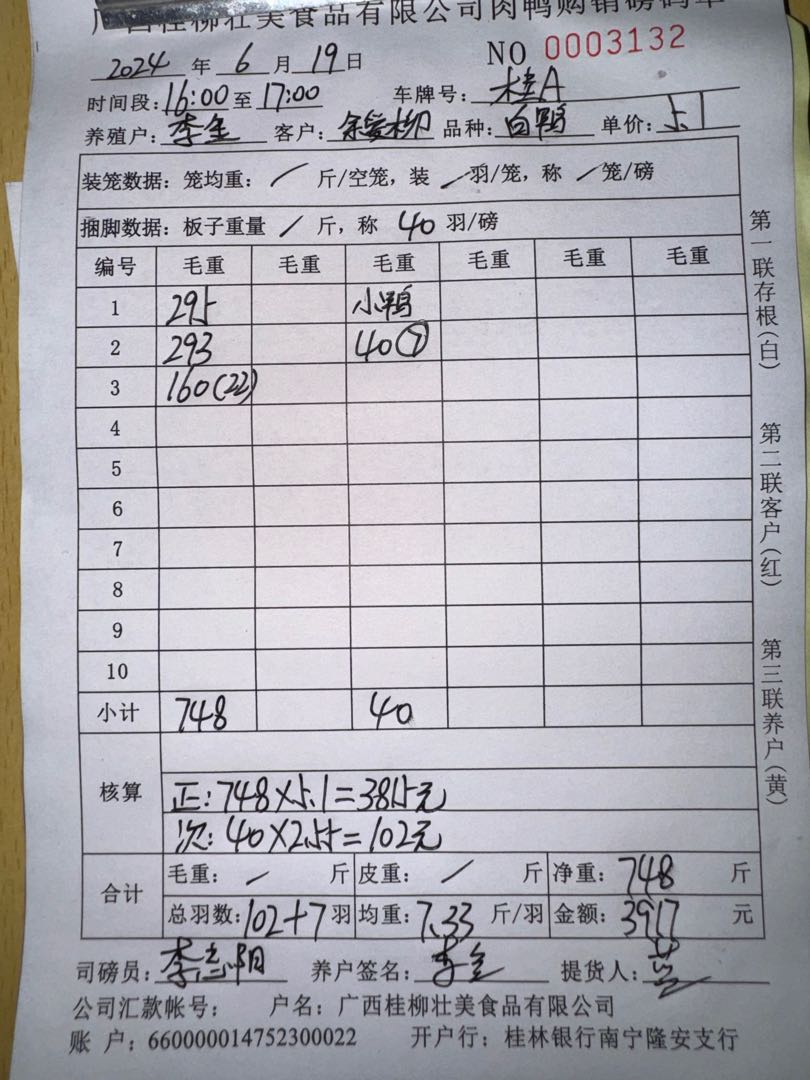 广西桂柳壮美食品有限公司肉鸭购销磅码单
2024 年 6 月 19 日 NO 0003132
时间段: 16:00 至 17:00 车牌号: 桂A
养殖户: 李金 客户: 柳 品种: 白鸭 单价: 5.1
装笼数据: 笼均重: / 斤/空笼, 装 / 羽/笼, 称 / 笼/磅
捆脚数据: 板子重量 / 斤, 称 40 羽/磅
编号 毛重 毛重 毛重 毛重 毛重 毛重
1 295 小鸭
2 293 40⑦
3 160(22)
4
5
6
7
8
9
10
小计 748 40
核算
正: 748×5.1=3815元
次: 40×2.55=102元
合计
毛重: / 斤 皮重: / 斤 净重: 748 斤
总羽数: 102+7 羽 均重: 7.33 斤/羽 金额: 3917 元
司磅员: 李志阳 养户签名: 李金 提货人:
公司汇款帐号: 户名: 广西桂柳壮美食品有限公司
账 户: 660000014752300022 开户行: 桂林银行南宁隆安支行
第一联存根(白)
第二联客户(红)
第三联养户(黄)